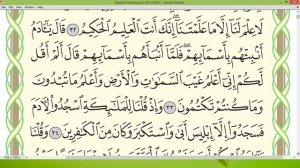 لَا عِلْمَ لَنَا إِلَّا مَا عَلَّمْتَنَا إِنَّكَ أَنتَ الْعَلِيمُ الْحَكِيمُ ٣٢ قَالَ يَٰٓـَٔادَمُ
أَنۢبِئْهُم بِأَسْمَائِهِمْ فَلَمَّا أَنۢبَأَهُم بِأَسْمَائِهِمْ قَالَ أَلَمْ أَقُل
لَّكُمْ إِنِّي أَعْلَمُ غَيْبَ السَّمَٰوَٰتِ وَالْأَرْضِ وَأَعْلَمُ مَا تُبْدُونَ
وَمَا كُنتُمْ تَكْتُمُونَ ٣٣ وَإِذْ قُلْنَا لِلْمَلَٰئِكَةِ اسْجُدُوا لِآدَمَ
فَسَجَدُوا إِلَّا إِبْلِيسَ أَبَىٰ وَاسْتَكْبَرَ وَكَانَ مِنَ الْكَٰفِرِينَ ٣٤ وَقُلْنَا